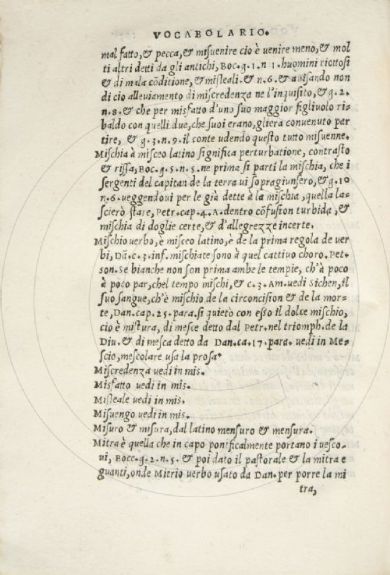 VOCABOLARIO.
mal fatto, & pecca, & misuenire cio è uenire meno, & mol
ti altri detti da gli antichi, Boc. g. 1. n 1. huomini riottosi
& di mala cōditione, & misleali. & n. 6. & auisando non
di cio alleuiamento di miscredenza ne l'inquisito, & g. 2.
n. 8. & che per misfatto d'uno suo maggior figliuolo ri=
baldo con quelli due, che suoi erano, gliera conuenuto par
tire, & g. 3. n. 9. il conte udendo questo tutto misuenne.
Mischia à misceo latino significa perturbatione, contrasto
& rissa, Boc. g. 5. n. 5. ne prima si parti la mischia, che i
sergenti del capitan de la terra ui sopragiunsero, & g. 10
n. 6. ueggendoui per le già dette à la mischia, quella la=
scierò stare, Petr. cap. 4. A. dentro cōfusion turbida, &
mischia di doglie certe, & d'allegrezze incerte.
Mischio uerbo, è misceo latino, è de la prima regola de uer
bi, Dā. c. 3. inf. mischiate sono à quel cattiuo choro. Pet=
son. Se bianche non son prima ambe le tempie, ch'à poco
à poco par, chel tempo mischi, & c. 3. Am. uedi Sichen, il
suo sangue, ch'è mischio de la circoncision & de la mor=
te, Dan. cap. 25. para. si quietò con esso il dolce mischio,
cio è mistura, di mesce detto dal Petr. nel triomph. de la
Diu. & di mesca detto da Dan. ca. 17. para. uedi in Me=
scio, mescolare usa la prosa.
Miscredenza uedi in mis.
Misfatto uedi in mis.
Misleale uedi in mis.
Misuengo uedi in mis.
Misuro & misura, dal latino mensuro & mensura.
Mitra è quella che in capo pontificalmente portano i uesco=
ui, Bocc. g. 2. n. 5. & poi dato il pastorale & la mitra e
guanti, onde Mitrio uerbo usato da Dan. per porre la mi
tra,